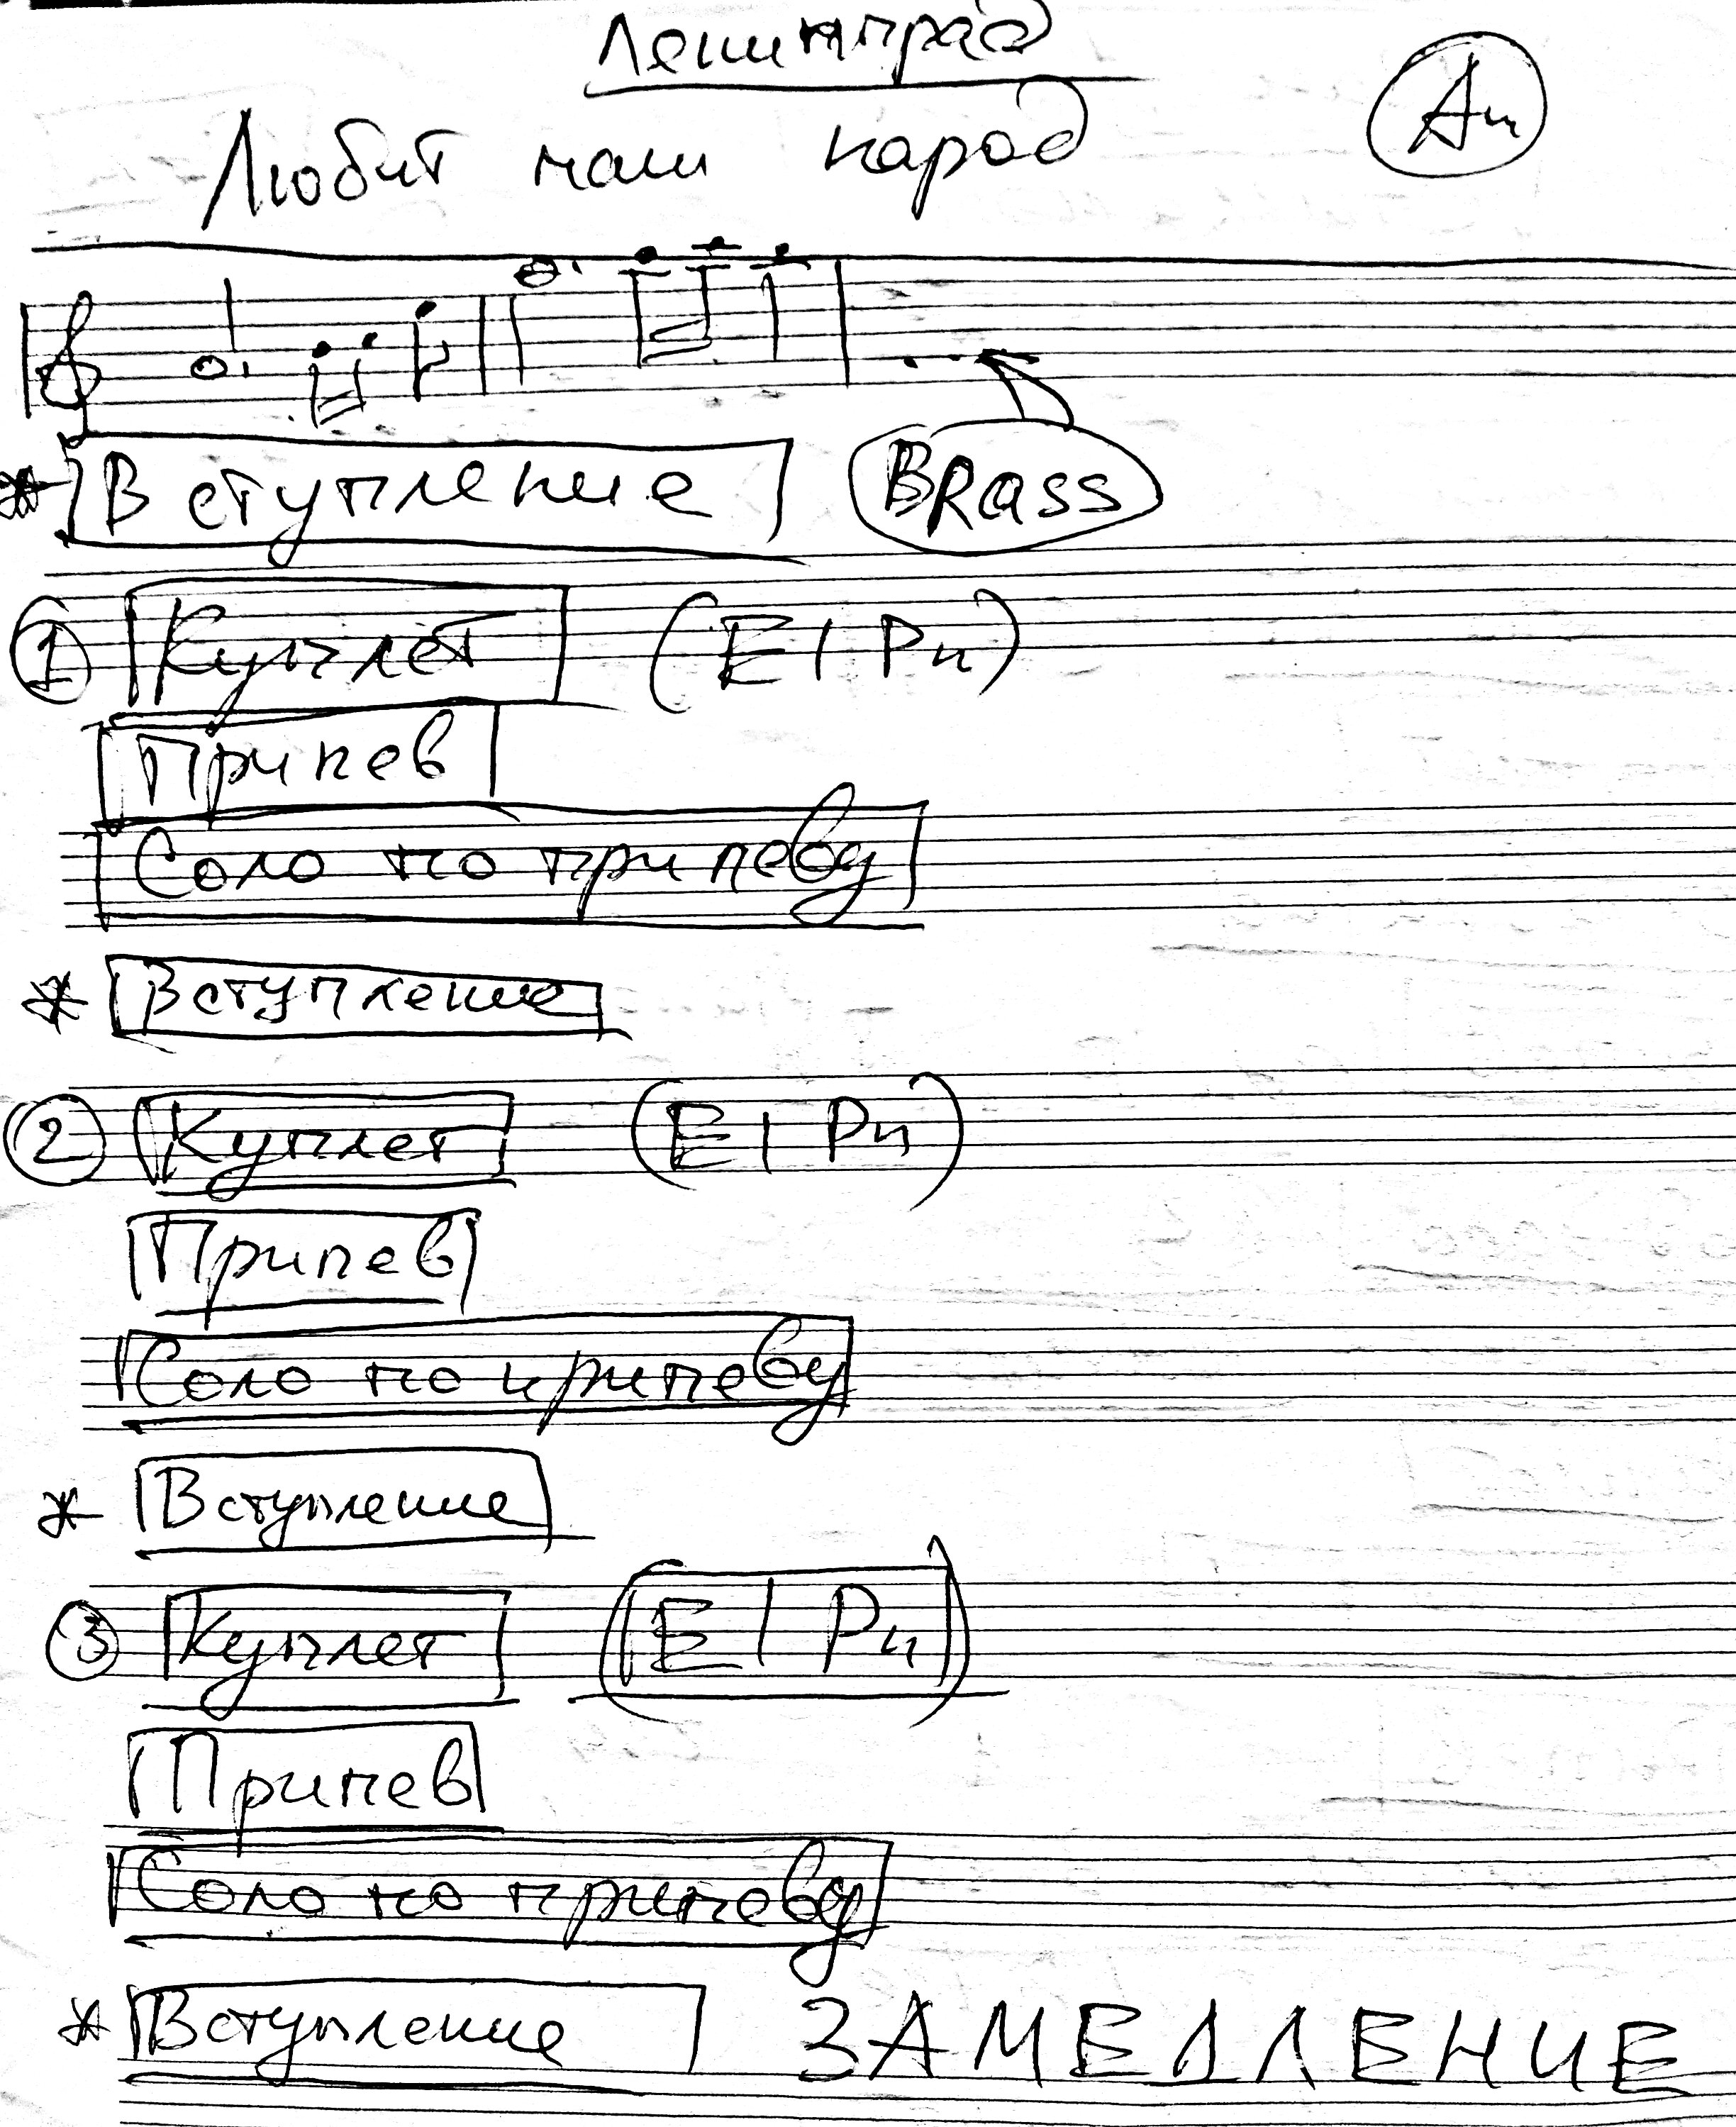 Ленинград
Любит наш народ Am
* Вступление BRASS
1 Куплет (El Pn)
Припев
Соло по припеву
* Вступление
2 Куплет (El Pn)
Припев
Соло по припеву
* Вступление
3 Куплет (El Pn)
Припев
Соло по припеву
* Вступление ЗАМЕДЛЕНИЕ